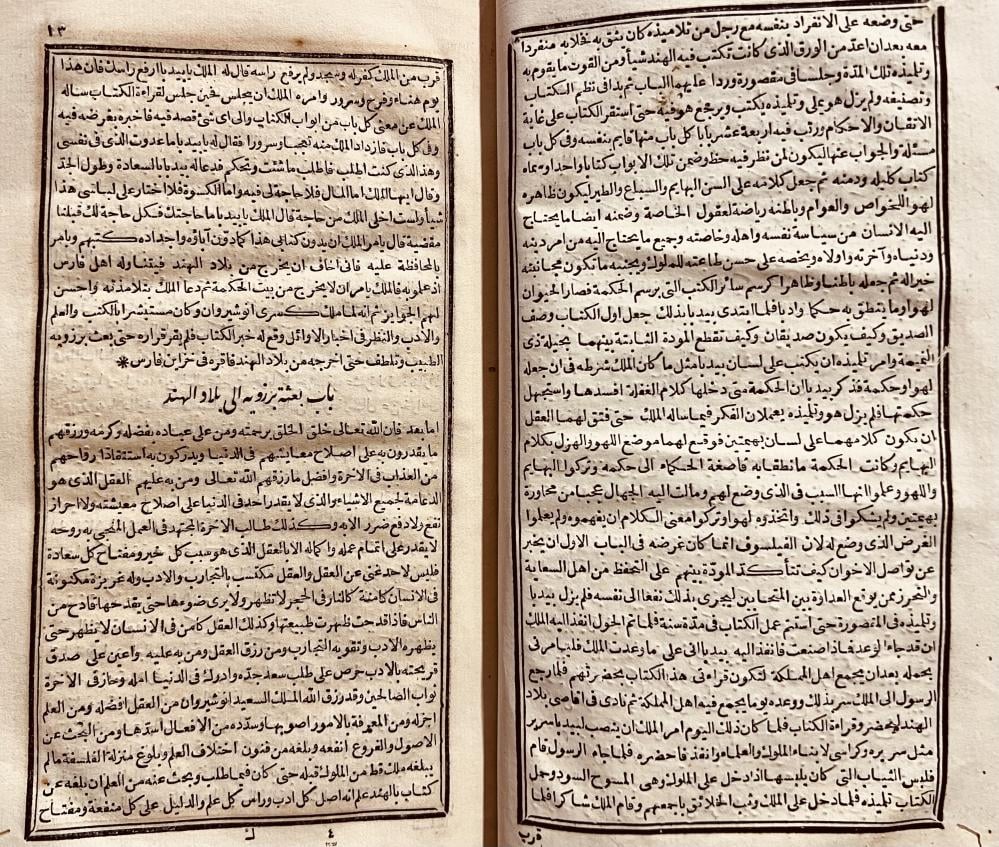 حتى وضعه على الانفراد بنفسه مع رجل من تلاميذه كان يثق به فخلا به منفردا
معه بعد ان اعد من الورق الذى كانت تكتب فيه الهند شيأ ومن القوت ما يقوم به
وبتلميذه تلك المدة وجلسا فى مقصورة وردا عليهما الباب ثم بدا فى نظم الكتاب
وتصنيفه ولم يزل هو يملى وتلميذه يكتب ويرجع هو فيه حتى استقر الكتاب على غاية
الاتقان والاحكام ورتب فيه اربعة عشر بابا كل باب منها قايم بنفسه وفى كل باب
مسئلة والجواب عنها ليكون لمن نظر فيه حظ وضمن تلك الابواب كتابا واحدا وسماه
كتاب كليله ودمنه ثم جعل كلامه على السن البهايم والسباع والطير ليكون ظاهره
لهوا للخواص والعوام وباطنه رياضة لعقول الخاصة وضمنه ايضا ما يحتاج
اليه الانسان من سياسة نفسه واهله وخاصته وجميع ما يحتاج اليه من امر دينه
ودنياه وآخرته واولاه ويحضه على حسن طاعته للملوك ويجنبه ما تكون مجانبته
خيرا له ثم جعله باطنا وظاهرا كرسم سائر الكتب التى برسم الحكمة فصار الحيوان
لهوا وما ينطق به حكما وادبا فلما ابتدى بيدبا بذلك جعل اول الكتاب وصف
الصديق وكيف يكون صديقان وكيف تقطع المودة الثابتة بينهما بحيلة ذى
النميمة وامر تلميذه ان يكتب على لسان بيدبا مثل ما كان الملك شرطه فى ان جعله
لهوا وحكمة فذكر بيدبا ان الحكمة متى دخلها كلام الغفلة افسدها واستجهل
حكمتها فلم يزل هو وتلميذه يعملان الفكر فيما ساله الملك حتى فتق لهما العقل
ان يكون كلامهما على لسان بهيمتين فوقع لهما موضع اللهو والهزل بكلام
البهايم وكانت الحكمة ما نطقا به فاصغت الحكماء الى حكمه وتركوا البهايم
واللهو وعلموا انها السبب فى الذى وضع لهم ومالت اليه الجهال عجبا من محاورة
بهيمتين ولم يشكوا فى ذلك واتخذوه لهوا وتركوا معنى الكلام ان يفهموه ولم يعلموا
الغرض الذى وضع له لان الفيلسوف انما كان غرضه فى الباب الاول ان يخبر
عن تواصل الاخوان كيف تتأكد المودة بينهم على التحفظ من اهل السعاية
والتحرز ممن يوقع العداوة بين المتحابين ليجرى بذلك نفعا الى نفسه فلم يزل بيدبا
وتلميذه فى المقصورة حتى استتم عمل الكتاب فى مدة سنة فلما تم الحول انفذ اليه الملك
ان قد جاء الوعد فماذا صنعت فانفذ اليه بيدبا انى على ما وعدت الملك فليامرنى
بحمله بعد ان يجمع اهل المملكة لتكون قراءتى هذا الكتاب بحضرتهم فلما رجع
الرسول الى الملك سر بذلك ووعده يوما يجمع فيه اهل المملكة ثم نادى فى اقاصى بلاد
الهند ليحضروا قراءة الكتاب فلما كان ذلك اليوم امر الملك ان ينصب لبيدبا سرير
مثل سريره وكراسى لابناء الملوك والعلماء وانفذ فاحضره فلما جاءه الرسول قام
فلبس الثياب التى كان يلبسها اذا دخل على الملوك وهى المسوح السود وحمل
الكتاب تلميذه فلما دخل على الملك وثب الخلائق باجمعهم وقام الملك شاكرا فلما
قرب
١٣
قرب من الملك كفر له وسجد ولم يرفع راسه قال له الملك يا بيدبا ارفع راسك فان هذا
يوم هناء وفرح وسرور وامره الملك ان يجلس فحين جلس لقراءة الكتاب ساله
الملك عن معنى كل باب من ابواب الكتاب والى اى شئ قصد فيه فاخبره بغرضه فيه
وفى كل باب فازداد الملك منه تعجبا وسرورا فقال له يا بيدبا ما عدوت الذى فى نفسى
وهذا الذى كنت اطلب فاطلب ما شئت وتحكم فدعا له بيدبا بالسعادة وطول الجد
وقال ايها الملك اما المال فلا حاجة لى فيه واما الكسوة فلا اختار على لباسى هذا
شيأ ولست اخلى الملك من حاجة قال الملك يا بيدبا ما حاجتك فكل حاجة لك قبلنا
مقضية قال يامر الملك ان يدون كتابى هذا كما دون آباؤه واجداده كتبهم ويامر
بالمحافظة عليه فانى اخاف ان يخرج من بلاد الهند فيتناوله اهل فارس
اذ علموا به فالملك يامر ان لا يخرج من بيت الحكمة ثم دعا الملك بتلامذته واحسن
لهم الجوايز ثم انه لما ملك كسرى انوشروان وكان مستبشرا بالكتب والعلم
والادب والنظر فى اخبار الاوائل وقع له خبر الكتاب فلم يقر قراره حتى بعث برزويه
الطبيب وتلطف حتى اخرجه من بلاد الهند فاقره فى خزاين فارس *
باب بعثة برزويه الى بلاد الهند
اما بعد فان الله تعالى خلق الخلق برحمته ومن على عباده بفضله وكرمه ورزقهم
ما يقدرون به على اصلاح معايشهم فى الدنيا ويدركون به استنقاذ ارواحهم
من العذاب فى الآخرة وافضل ما رزقهم الله تعالى ومن به عليهم العقل الذى هو
الدعامة لجميع الاشياء والذى لا يقدر احد فى الدنيا على اصلاح معيشته ولا احراز
نفع ولا دفع ضرر الا به وكذلك طالب الاخرة المجتهد فى العمل المنجى به روحه
لا يقدر على اتمام عمله واكماله الا بالعقل الذى هو سبب كل خير ومفتاح كل سعادة
فليس لاحد غنى عن العقل والعقل مكتسب بالتجارب والادب وله غريزة مكنونة
فى الانسان كامنة كالنار فى الحجر لا تظهر ولا يرى ضوءها حتى يقدحها قادح من
الناس فاذا قدحت ظهرت طبيعتها وكذلك العقل كامن فى الانسان لا يظهر حتى
يظهره الادب وتقويه التجارب ومن رزق العقل ومن به عليه واعين على صدق
قريحته بالادب حرص على طلب سعد جده وادرك فى الدنيا امله وحاز فى الآخرة
ثواب الصالحين وقد رزق الله الملك السعيد انوشيروان من العقل افضله ومن العلم
اجزله ومن المعرفة بالامور اصوبها وسدده من الافعال اسدها ومن البحث عن
الاصول والفروع انفعه وبلغه من فنون اختلاف العلم وبلوغ منزلة الفلسفة ما لم
يبلغه ملك قط من الملوك قبله حتى كان فيما طلب وبحث عنه من العلم ان بلغه عن
كتاب بالهند علم انه اصل كل ادب وراس كل علم والدليل على كل منفعة ومفتاح
٤
ك